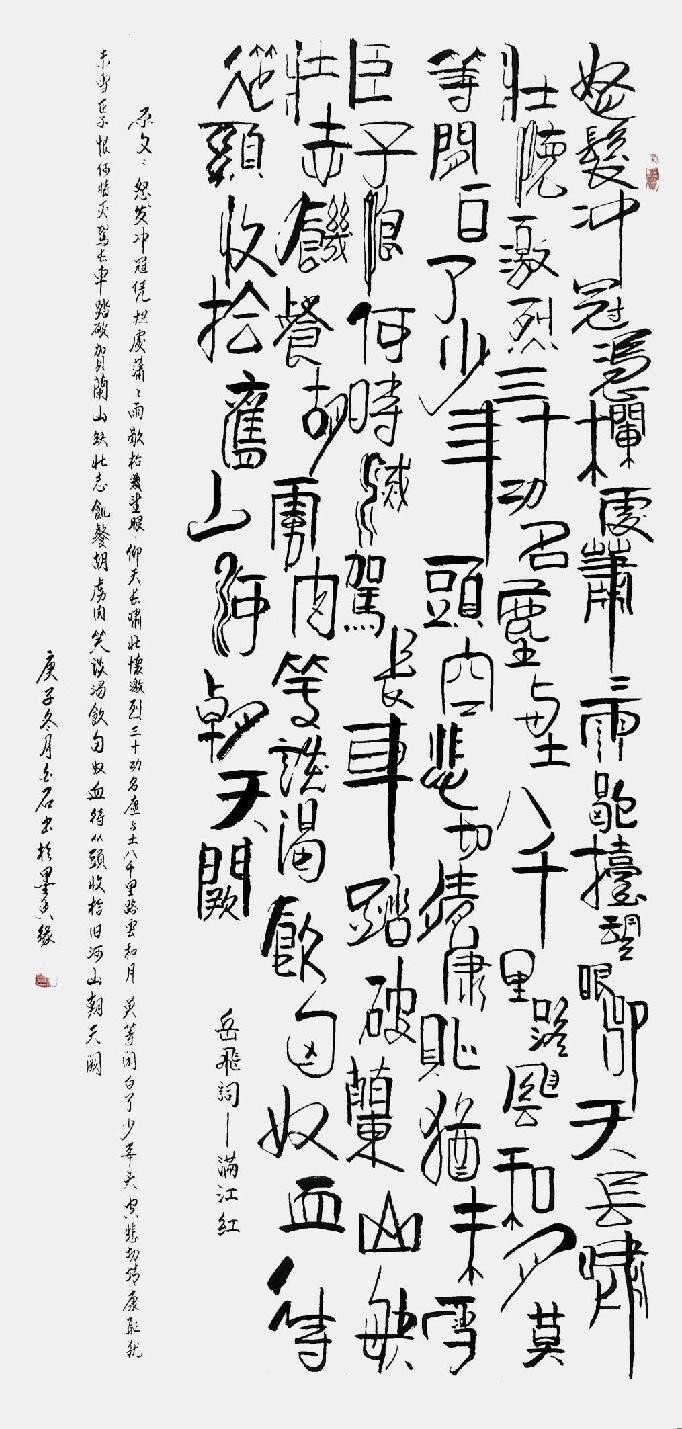 怒髮冲冠憑欄處蕭〻雨歇擡望眼仰天長嘯
壯懷激烈三十功名塵与土八千里路雲和月莫
等閒白了少年頭空悲切靖康恥猶未雪
臣子恨何時滅駕長車踏破蘭山缺
壯志饑餐胡虜肉笑談渴飲匈奴血待
從頭收拾舊山河朝天闕
岳飛詞—满江红
原文：怒发冲冠凭栏處蕭〻雨歇抬望眼仰天长嘯壮懷激烈三十功名塵与土八千里路雲和月莫等闲白了少年头空悲切靖康耻犹
未雪臣子恨何時灭驾长車踏破賀蘭山缺壮志飢餐胡虏肉笑谈渴飲匈奴血待从頭收拾旧河山朝天阙
庚子冬月金石书於墨香缘